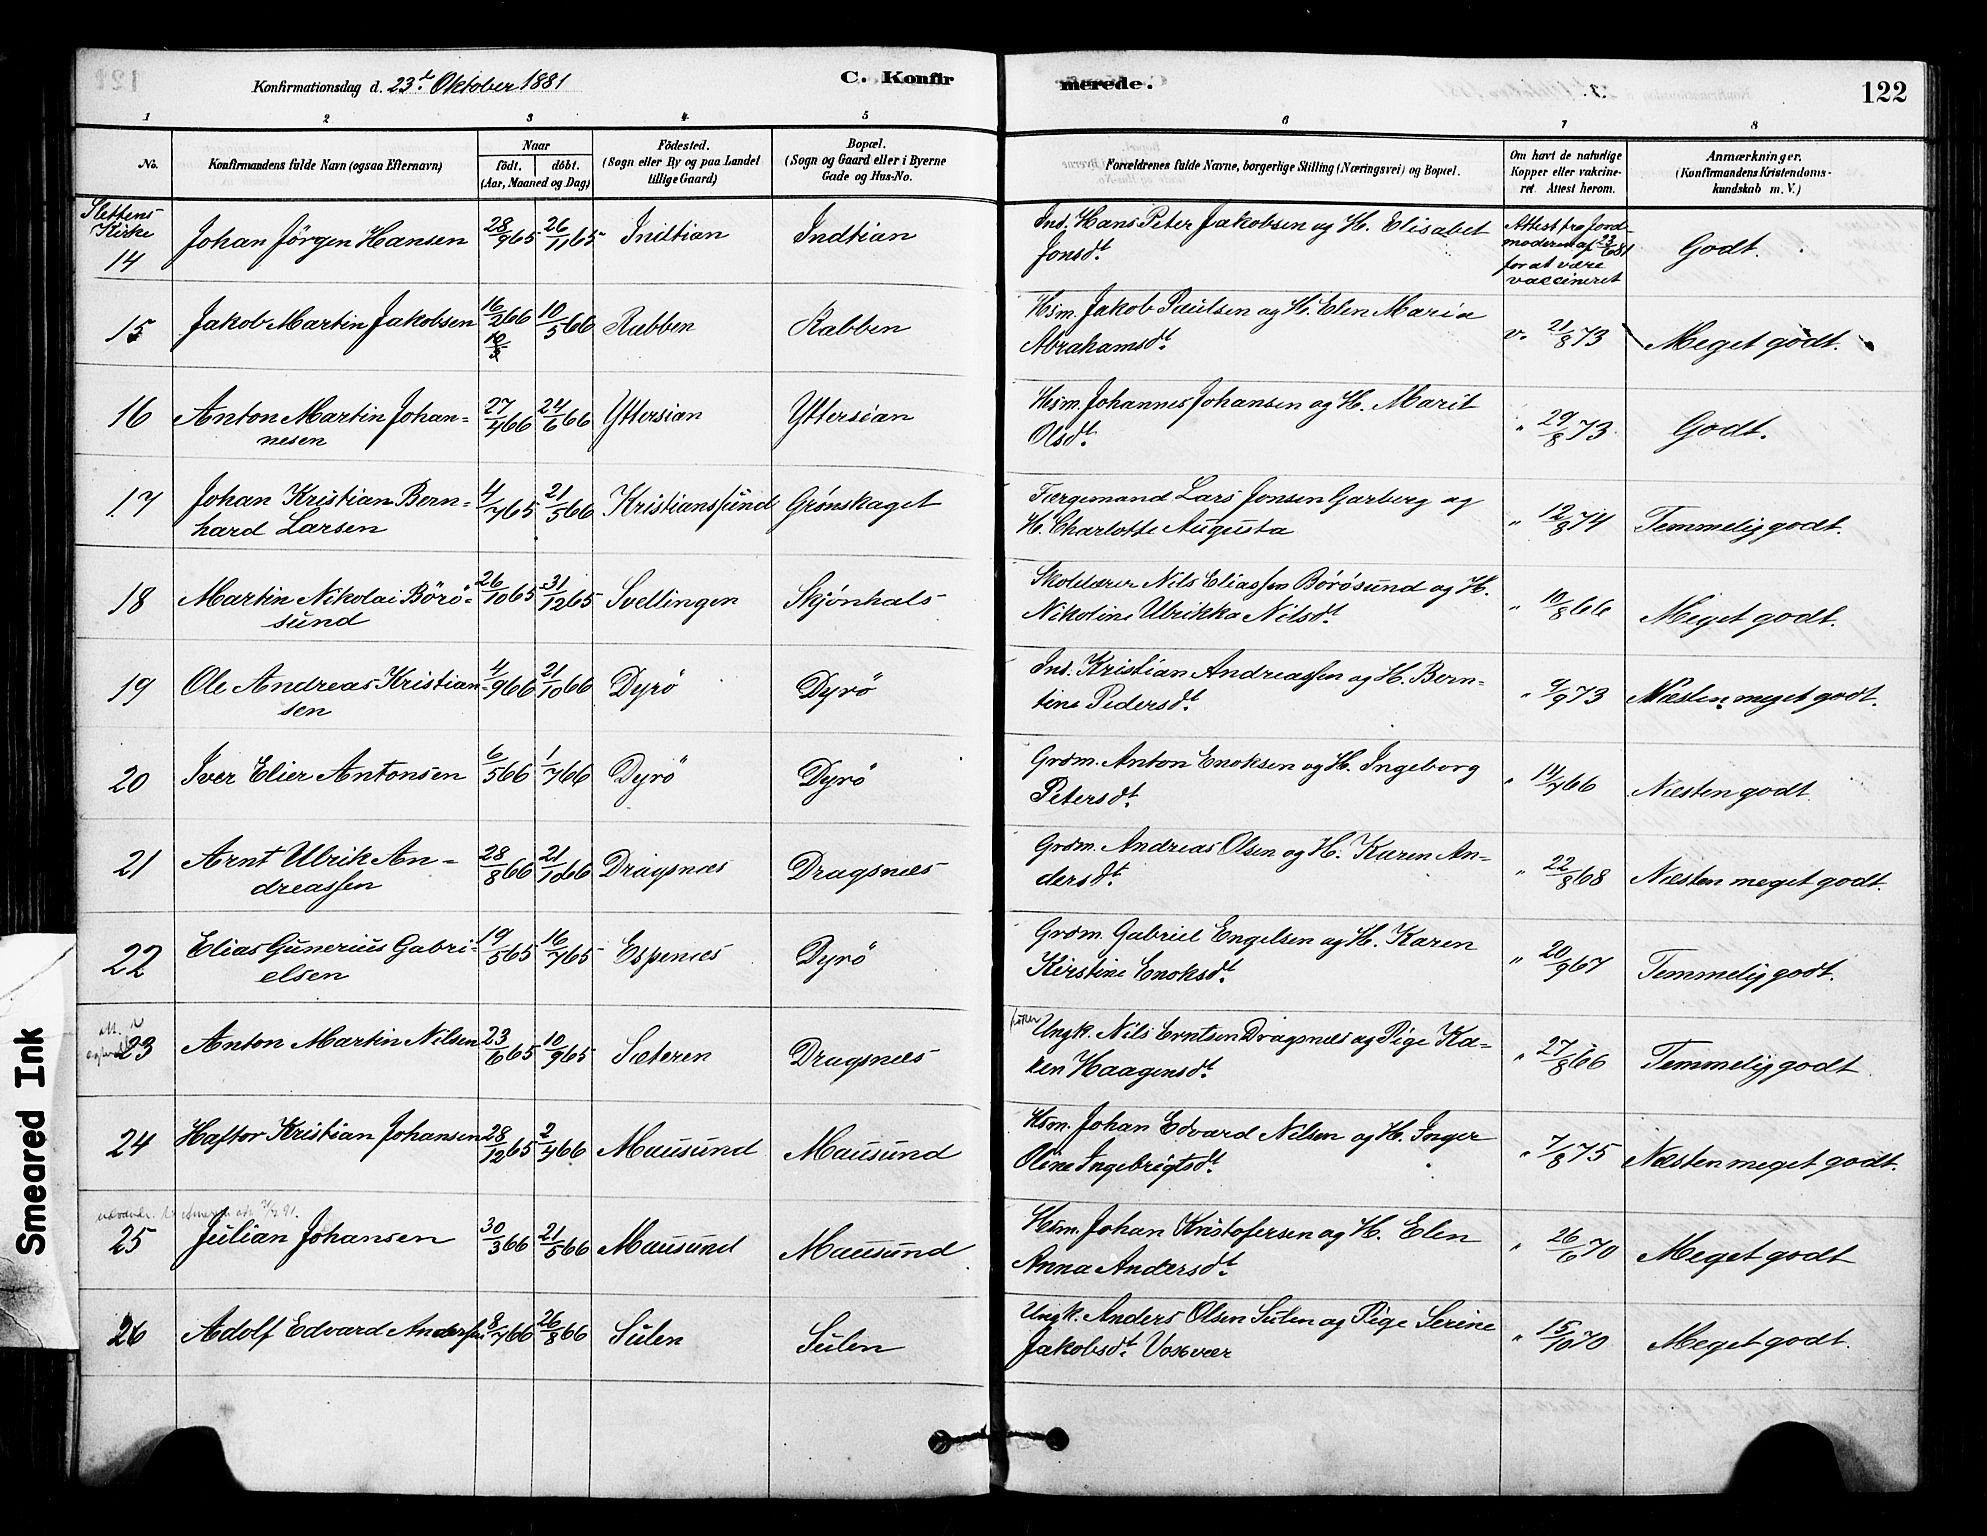 Konfirmationsdag d. 23de Oktober 1881
C. Konfirmerede.
122
1 2 3 4 5 6 7 8
No. Konfirmandens fulde Navn (ogsaa Efternavn) Naar födt. döbt. (Aar, Maaned og Dag) Födested. (Sogn eller By og paa Landet tillige Gaard) Bopæl. (Sogn og Gaard eller i Byerne Gade og Hus-No.
Forældrenes fulde Navne, borgerlige Stilling (Næringsvei) og Bopæl. Om havt de naturlige Kopper eller vakcineret. Attest herom. Anmærkninger. (Konfirmandens Kristendomskundskab m. V.)
Slettens Kirke
14 Johan Jörgen Hansen 28/9 65 26/11 65 Indtian Indtian Ind. Hans Peter Jakobsen og H. Elisabet Jonsdt. Attest fra Jordmoderen af 23/6 81 for at være vaccineret Godt.
15 Jakob Martin Jakobsen 16/2 66 10/5 66 Rabben Rabben Hsm. Jakob Paulsen og H. Elen Maria Abrahamsdt. v. 21/8 73 Meget godt.
16 Anton Martin Johannesen 27/4 66 24/6 66 Yttersian Yttersian Hsm. Johannes Johansen og H. Marit Olsdt. " 29/8 73 Godt.
17 Johan Kristian Bernhard Larsen 4/7 65 21/5 66 Kristianssund Grønskaget Færgemand Lars Jonsen Garberg og H. Charlotte Augusta " 12/8 74 Temmelig godt.
18 Martin Nikolai Börösund 26/10 65 31/12 65 Svellingen Skjønhals Skolelærer Nils Eliassen Börösund og H. Nikoline Ulrikka Nilsdt. " 10/8 66 Meget godt.
19 Ole Andreas Kristiansen 4/9 66 21/10 66 Dyrö Dyrö Ind. Kristian Andreassen og H. Berntine Pedersdt. " 9/9 73 Næsten meget godt.
20 Iver Elier Antonsen 6/5 66 1/7 66 Dyrö Dyrö Grdm. Anton Enoksen og H. Ingeborg Petersdt. " 14/7 66 Næsten godt
21 Arnt Ulrik Andreassen 28/8 66 21/10 66 Dragsnæs Dragsnæs Grdm. Andreas Olsen og H. Karen Andersdt. " 22/8 68 Næsten meget godt.
22 Elias Gunerius Gabrielsen 19/5 65 16/7 65 Espenæs Dyrö Grdm. Gabriel Engelsen og H. Karen Kirstine Enoksdt. " 20/9 67 Temmelig godt.
23 Anton Martin Nilsen 23/6 65 10/9 65 Sæteren Dragsnæs Ungk. Nils Erntsen Dragsnæs og Pige Karen Haagensdt. " 27/8 66 Temmelig godt
24 Haftor Kristian Johansen 28/12 65 2/4 66 Mausund Mausund Hsm. Johan Edvard Nilsen og H. Inger Oline Ingebrigtsdt. " 7/8 75 Næsten meget godt.
25 Julian Johansen 30/3 66 21/5 66 Mausund Mausund Hsm. Johan Kristofersen og H. Elen Anna Andersdt. " 26/6 70 Meget godt
26 Adolf Edvard Anderssen 8/7 66 26/8 66 Sulen Sulen Ungk. Anders Olsen Sulen og Pige Serine Jakobsdt. Vosvær " 15/10 70 Meget godt.
Smeared Ink